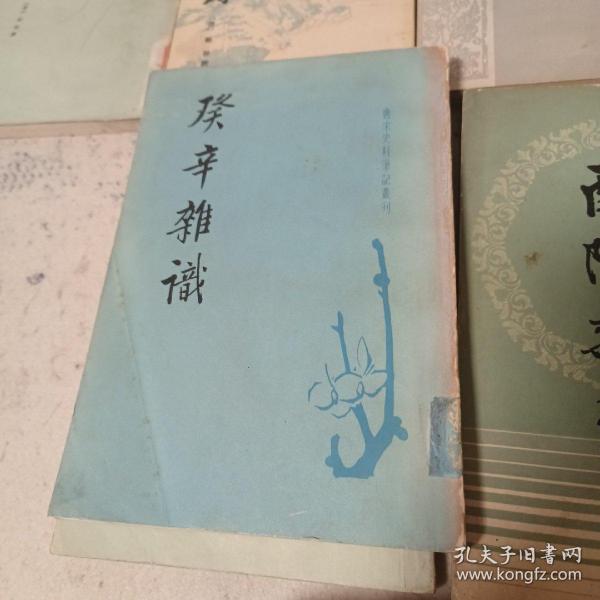 癸辛雜識
唐宋史料筆記叢刊
孔夫子旧书网
www.kongfz.com